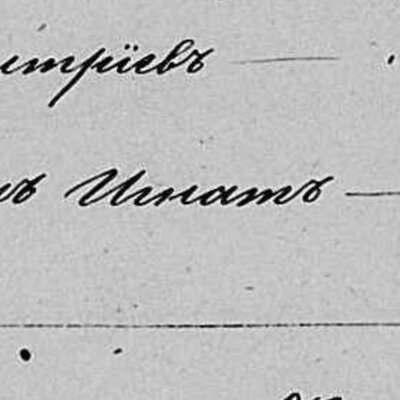 митріевъ
ъ Игнатъ